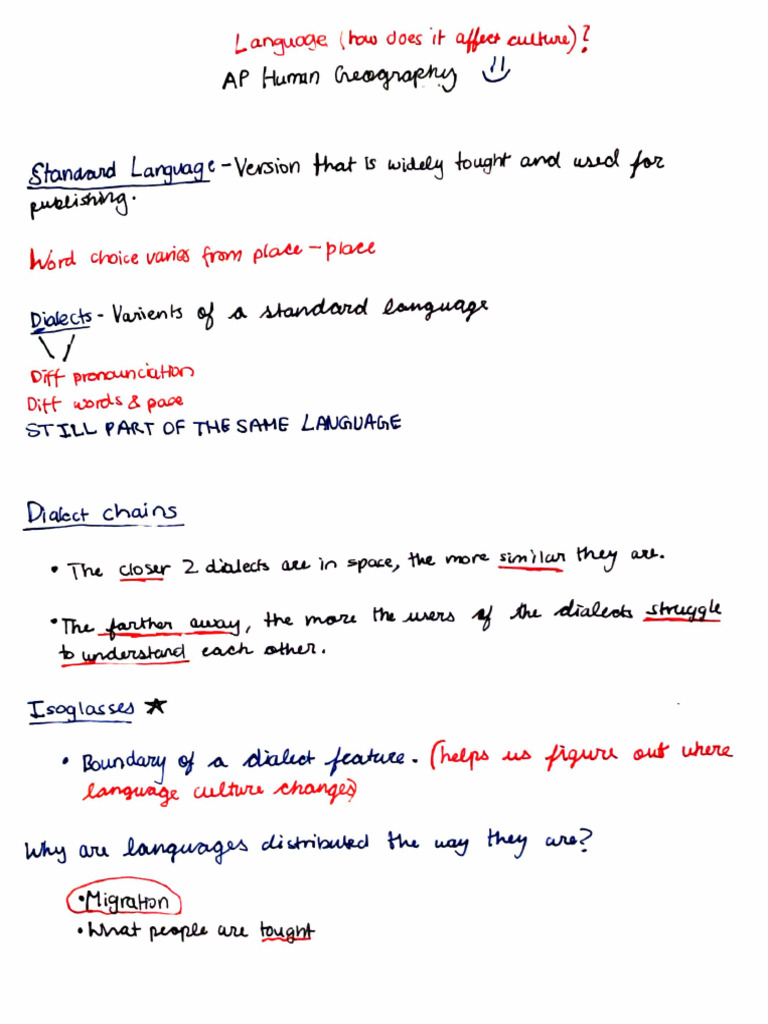 Language (how does it affect culture)?
AP Human Geography
Standard Language - Version that is widely tought and used for
publishing.
Word choice varies from place - place
Dialects - Varients of a standard language
Diff pronounciation
Diff words & pace
STILL PART OF THE SAME LANGUAGE
Dialect chains
• The closer 2 dialects are in space, the more similar they are.
• The farther away, the more the users of the dialects struggle
to understand each other.
Isoglasses ★
• Boundary of a dialect feature. (helps us figure out where
language culture changes)
Why are languages distributed the way they are?
• Migration
• What people are tought